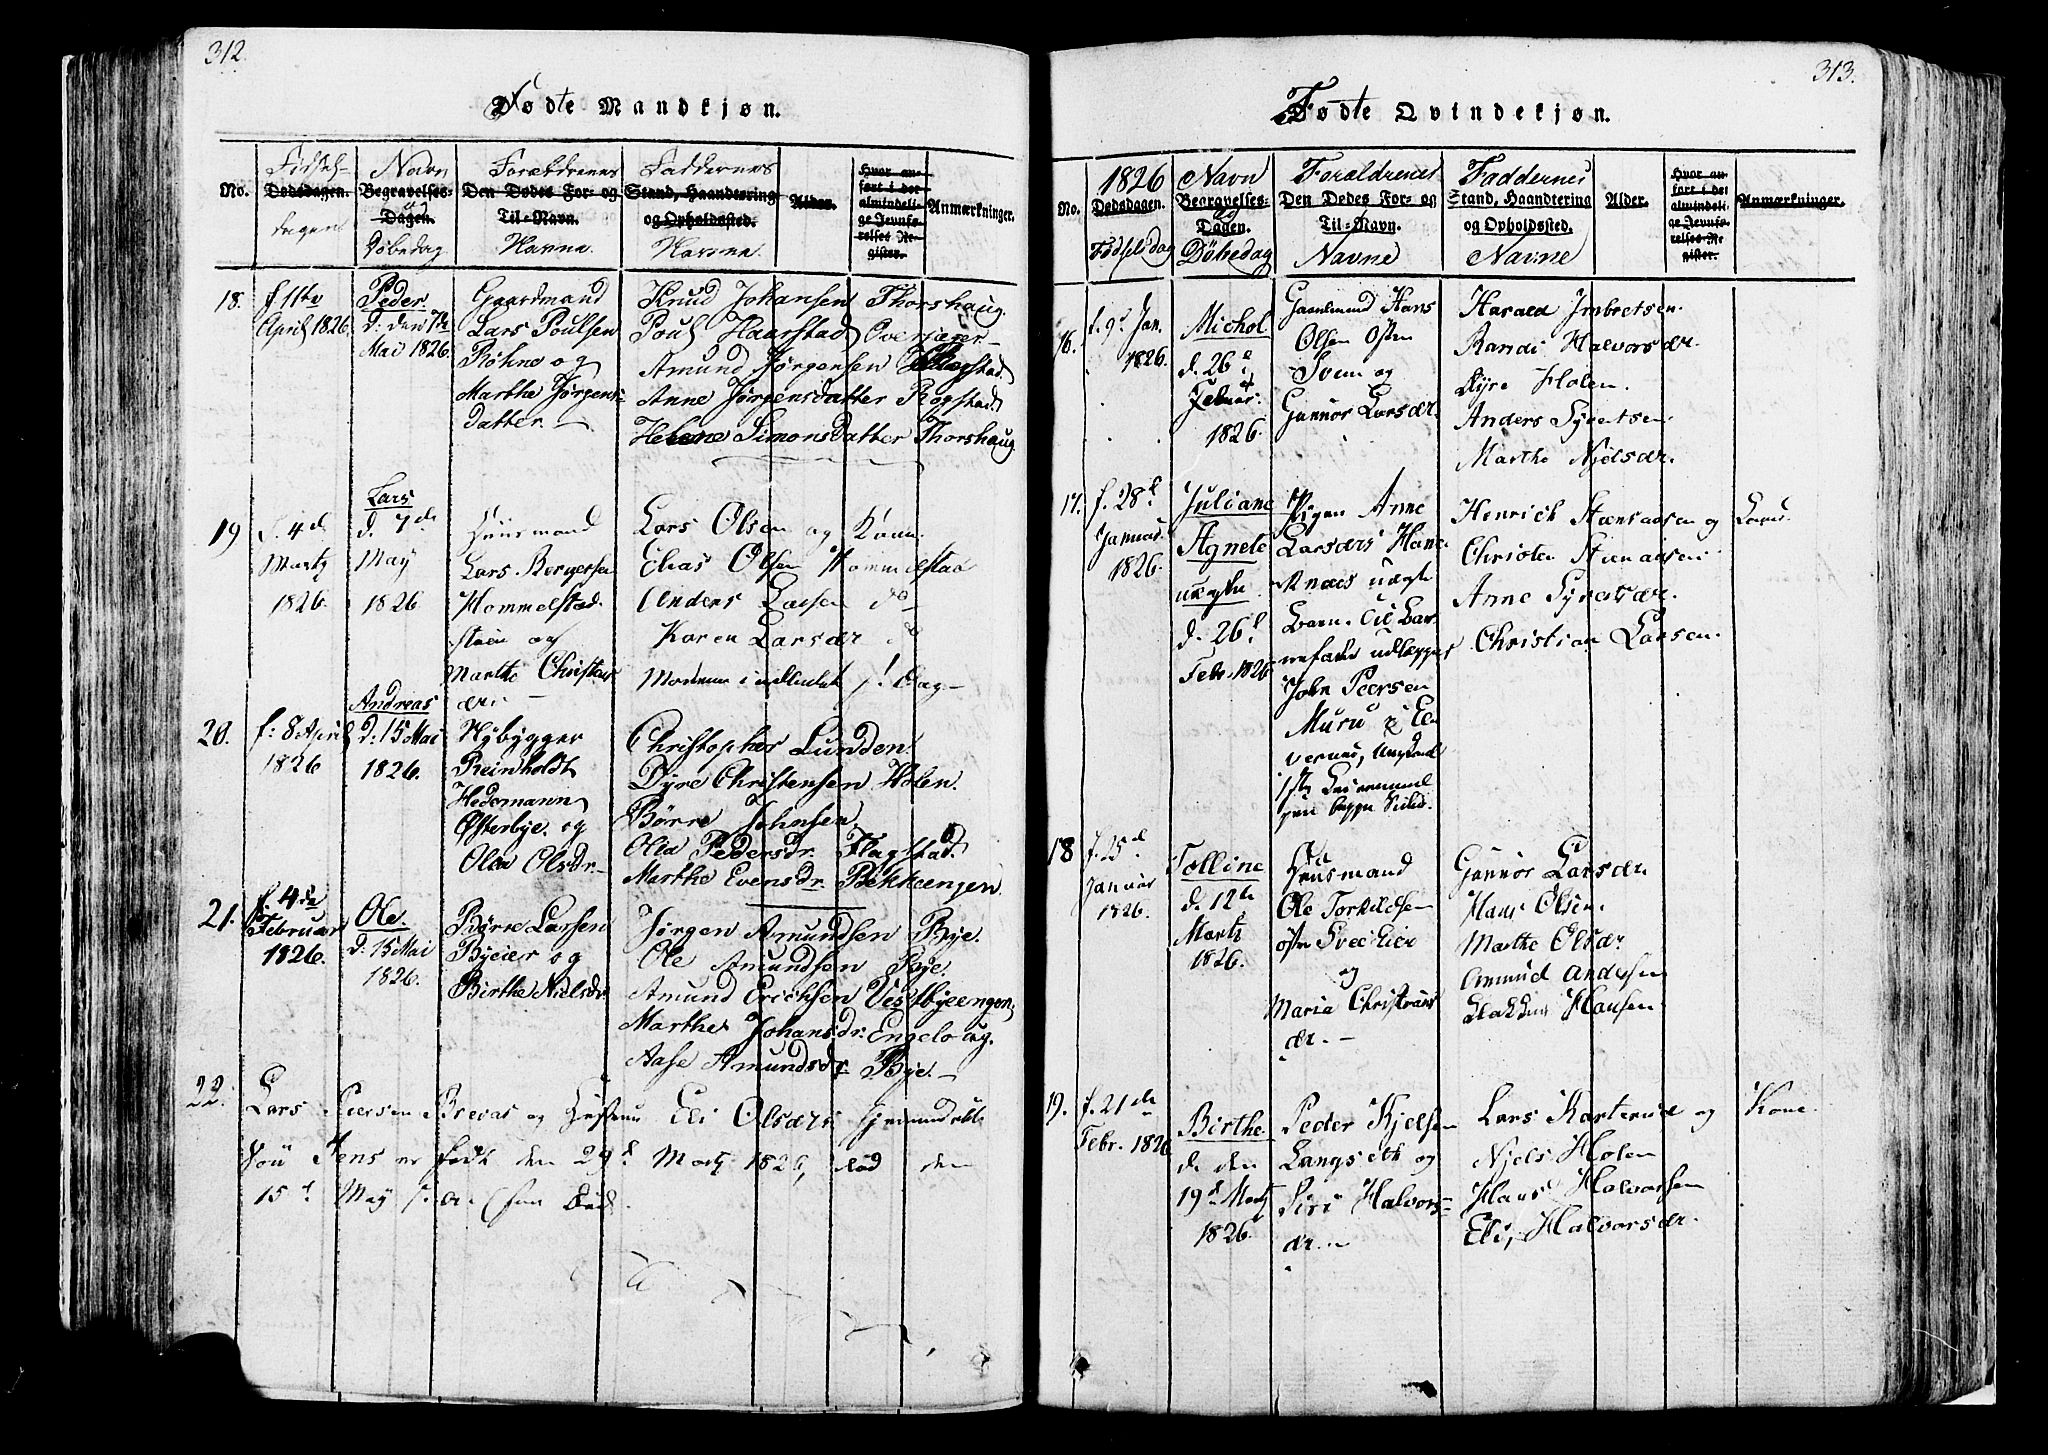 312.
Fødte Mandkjøn.
No.
Fødsels-
Dødsdagen.
dagen
Navn
Begravelses-
og
Dagen.
Døbedag
Foreldrenes
Den Dødes For- og
Til-Navn.
Navne.
Faddernes
Stand, Haandtering
og Opholdssted.
Navne
Alder.
Hvor an-
ført i det
almindeli-
ge Jevnfø-
relses Re-
gister.
Anmærkninger.
18.
f. 11te
April 1826.
Peder
d: den 7de
Mai 1826.
Gaardmand
Lars Poulsen
Böhne og
Marthe Jørgens-
datter.
Knud Johansen Thorshaug.
Poul Haarstad
Amund Jørgensen
Anne Jørgensdatter Rogstad.
Helene Simonsdatter Thorshaug
19
f. 4de
Martz
1826.
Lars
d. 7de
May
1826
Huusmand
Lars Bergersen
Hommelstad
og
Marthe Christens
dr.
Lars Olsen og Kone
Elias Olsen Hommelstad
Anders Larsen do
Karen Larsdr do
20.
f: 8 April
1826
Andreas
d: 15 Mai
1826.
Nybygger
Reinholdt
Hedemann
Østerbye. og
Olea Olsdr.
Christopher Lunden.
Dyre Christensen Holen.
Börre Johnsen.
Olia Pedersdr. Flagstad.
Marthe Evensdr. Bekkeengen
21.
f. 4de
Februar
1826.
Ole.
d. 15 Mai
1826.
Börre Larsen
Byeier og
Birthe Nielsdr
Jørgen Amundsen Bye.
Ole Amundsen Bye.
Amund Erichsen Vestbyeengen
Marthe Johansdr. Engelaug.
Aase Amundsdr Bye.
22.
Lars Peersen og Hustrue Eli Olsdrs
Søn Jens er født den 29de Martz 1826, død den
15de May s. a.
313.
Fødte Qvindekjøn.
No.
1826
Dødsdagen.
Fødselsdag
Navn
Begravelses-
og
Dagen.
Döbedag
Forældrenes
Den Dødes For- og
Til-Navn.
Navne
Faddernes
Stand, Haandtering
og Opholdssted.
Navne
Alder.
Hvor an-
ført i det
almindeli-
ge Jevnfø-
relses Re-
gister.
Anmærkninger.
16.
f. 9de Jan.
1826.
Michol
d. 26de
Februar.
1826.
Gaardmand Hans
Olsen Östen
Sveen og
Gunnor Larsdr.
Harald Imbretsen.
Randi Halvorsdr.
Dyre Holen.
Anders Syvertsen.
Marthe Njelsdr.
17.
f. 28de
Januar
1826.
Juliane
Agnete
uægte
d. 26de
Febr. 1826
Pigen Anne
Larsdrs
uægte
Barn. Til Bar-
nefader udlægges
John Peersen
Henrich Steensdsen og
Christen
Anne Syversdr.
Christian Larsen.
18
f. 25de
Januar
1826.
Tolline
d. 12te
Martz
1826.
Huusmand
Ole Torkildsen
og
Maria Christians
dr.
Gunnor Larsdr
Hans Olsen.
Marthe Olsdr
Ammund Andersen
Hansen
19.
f. 21de
Febr. 1826
Birthe
d. den
19de Martz
1826.
Peder Kjelsen
Langseth og
Siri Halvors-
dr.
Lars Karterud og Kone.
Njels Holen
Hans Halvorsen
Eli, Halvorsdr.